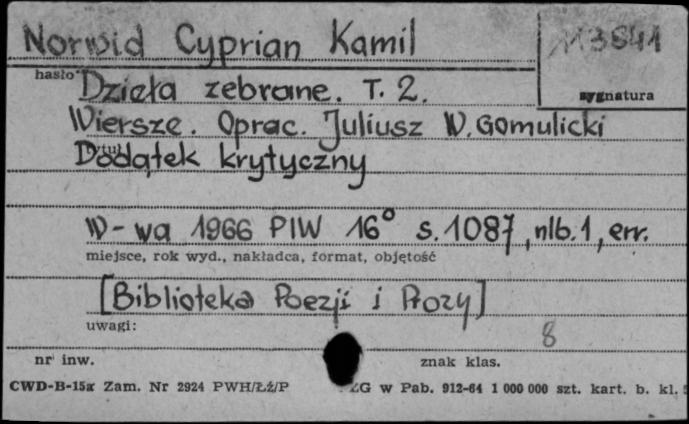 Norwid Cyprian Kamil
113841
hasło
sygnatura
Dzieła zebrane. T. 2.
Wiersze. Oprac. Juliusz W. Gomulicki
Dodatek krytyczny
W-wa 1966 PIW 16° s. 1087, nlb. 1, err.
miejsce, rok wyd., nakładca, format, objętość
[Biblioteka Poezji i Prozy]
uwagi:
8
nr inw.
znak klas.
CWD-B-15a Zam. Nr 2924 PWH/Łź/P ZG w Pab. 912-64 1 000 000 szt. kart. b. kl.